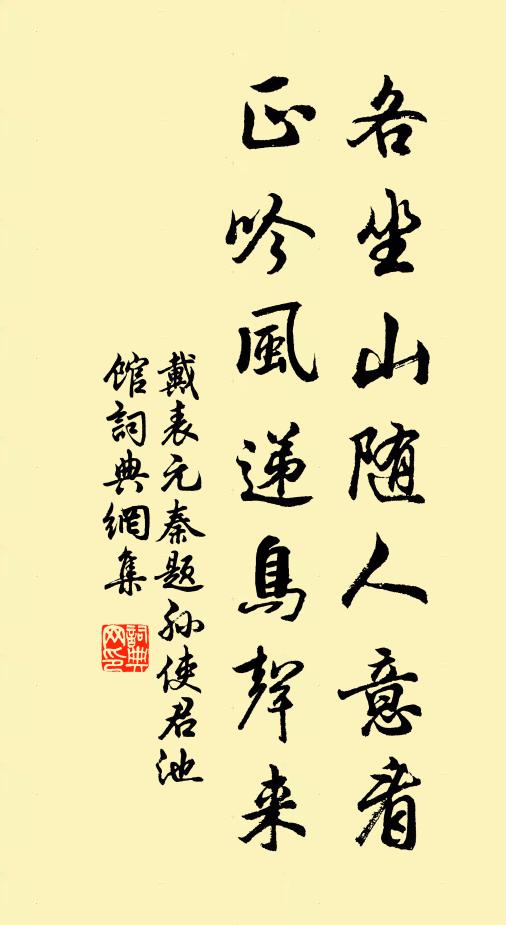 各坐山随人意看
正吟風递鳥聲来
戴表元秦题孙使君池
館詞典網集
詞典
网印